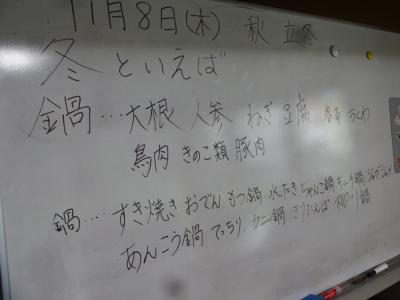 11月8日(木) 秋 立冬
冬といえば
鍋…大根 人参 ねぎ 豆腐 春菊 ちくわ
鳥肉 きのこ類 豚肉
鍋…すき焼き おでん もつ鍋 水たき ちゃんこ鍋 キムチ鍋 シャブシャブ
あんこう鍋 てっちり カニ鍋 きりたんぽ 鍋